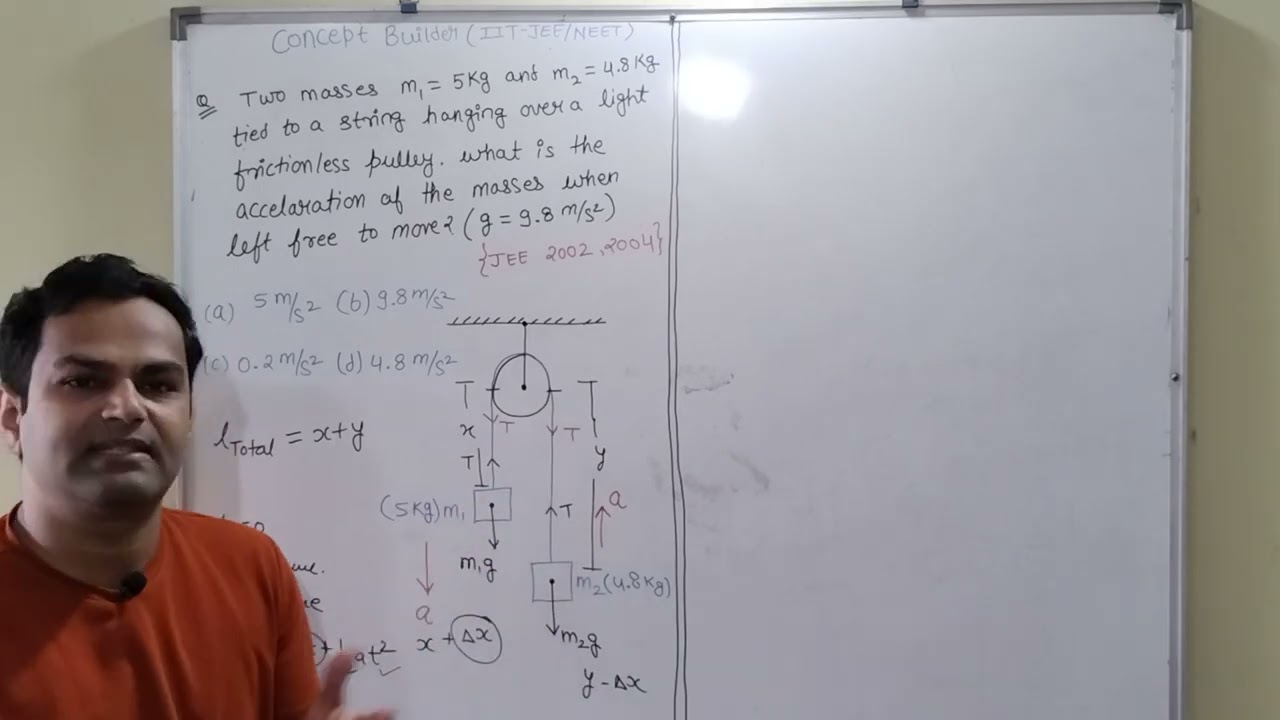 Concept Builder (IIT-JEE/NEET)
Q Two masses m₁ = 5Kg and m₂ = 4.8Kg
tied to a string hanging over a light
frictionless pulley. what is the
accelaration of the masses when
left free to move? (g = 9.8 m/s²)
{JEE 2002, 2004}
(a) 5 m/s² (b) 9.8 m/s²
(c) 0.2 m/s² (d) 4.8 m/s²
l Total = x+y
T T
x T T
T y
(5Kg) m₁ T a
m₁g
m₂ (4.8Kg)
a
at² x + Δx
m₂g
y - Δx